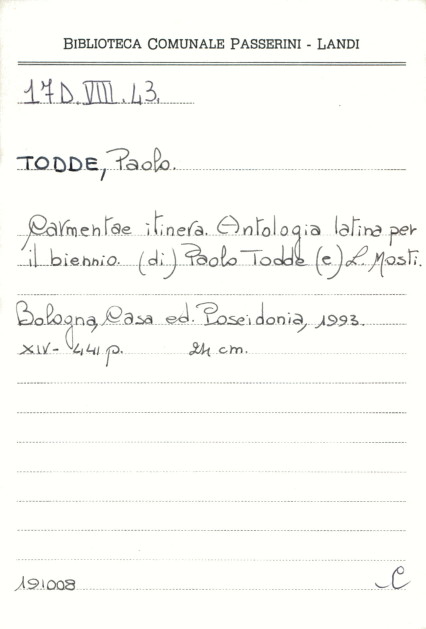 BIBLIOTECA COMUNALE PASSERINI - LANDI
17D.VIII.43.
TODDE, Paolo.
Carmentae itinera. Antologia latina per
il biennio. (di) Paolo Todde (e) L. Mosti.
Bologna, Casa ed. Poseidonia, 1993.
XIV- 441 p. 24 cm.
191008 C